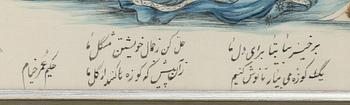 برخیز بتا بیا برای دل ما
حل کن زجمال خویشتن مشکل ما
یک کوزه می بیار تا نوش کنیم
زان پیش که کوزه ها کنند از گل ما
حکیم عمر خیام